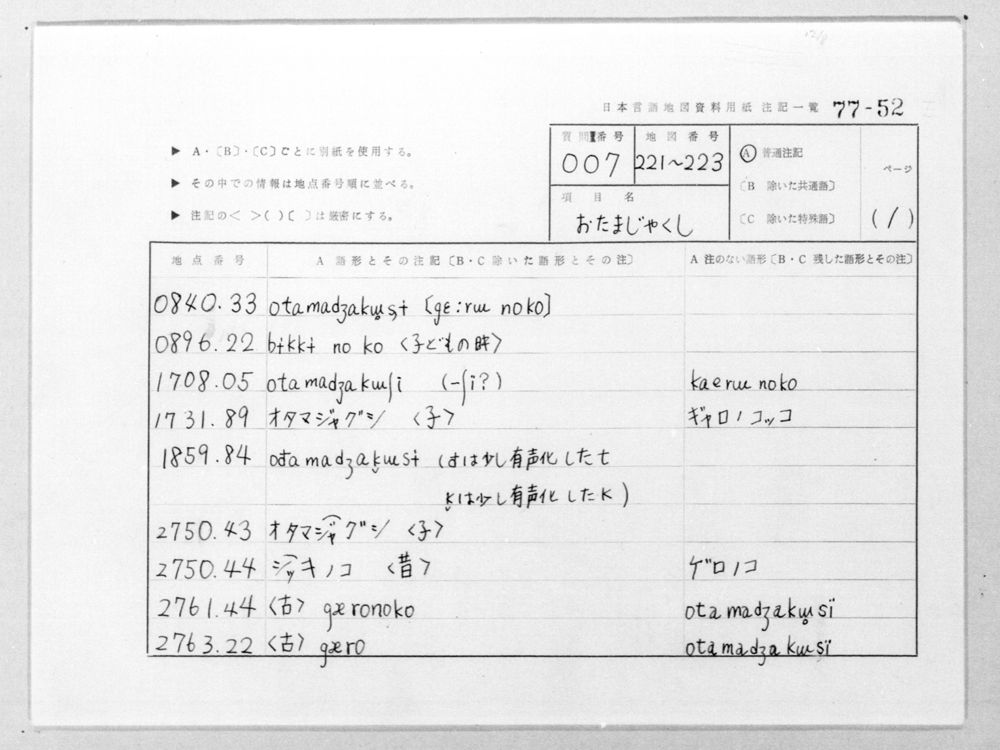 日本言語地図資料用紙 注記一覧 77-52
▶ A・〔B〕・〔C〕ごとに別紙を使用する。
▶ その中での情報は地点番号順に並べる。
▶ 注記の< >( )〔 〕は厳密にする。
質問番号 地図番号
007 221~223
項目名
おたまじゃくし
Ⓐ 普通注記
〔B 除いた共通語〕
〔C 除いた特殊語〕
ページ
(1)
地点番号 A 語形とその注記〔B・C除いた語形とその注〕 A 注のない語形〔B・C残した語形とその注〕
0840.33 otamadʒakɯ̥sɨ 〔gɛːrɯ noko〕
0896.22 bɨkkɨ no ko 〈子どもの時〉
1708.05 otamadʒakɯʃi (-ʃi?) kaerɯ noko
1731.89 オタマジャグシ 〈子〉 ギャロノコッコ
1859.84 ot̬amadʒak̬ɯsɨ (t̬は少し有声化したt
k̬は少し有声化したk)
2750.43 オタマジャグシ 〈子〉
2750.44 ジッキノコ 〈昔〉 ゲロノコ
2761.44 〈古〉 gæronoko otamadʒakɯ̥sï
2763.22 〈古〉 gæro otamadʒakɯsï